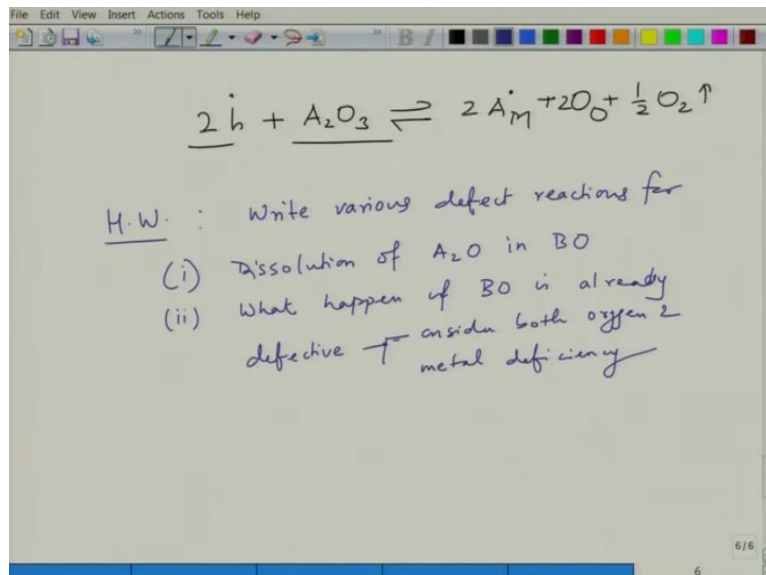 File Edit View Insert Actions Tools Help
B I
2 ḣ + A₂O₃ ⇌ 2 Aṁ + 2O₀ + ½ O₂ ↑
H.W. : Write various defect reactions for
(i) Dissolution of A₂O in BO
(ii) What happen if BO is already
defective → consider both oxygen &
metal deficiency
6/6
6